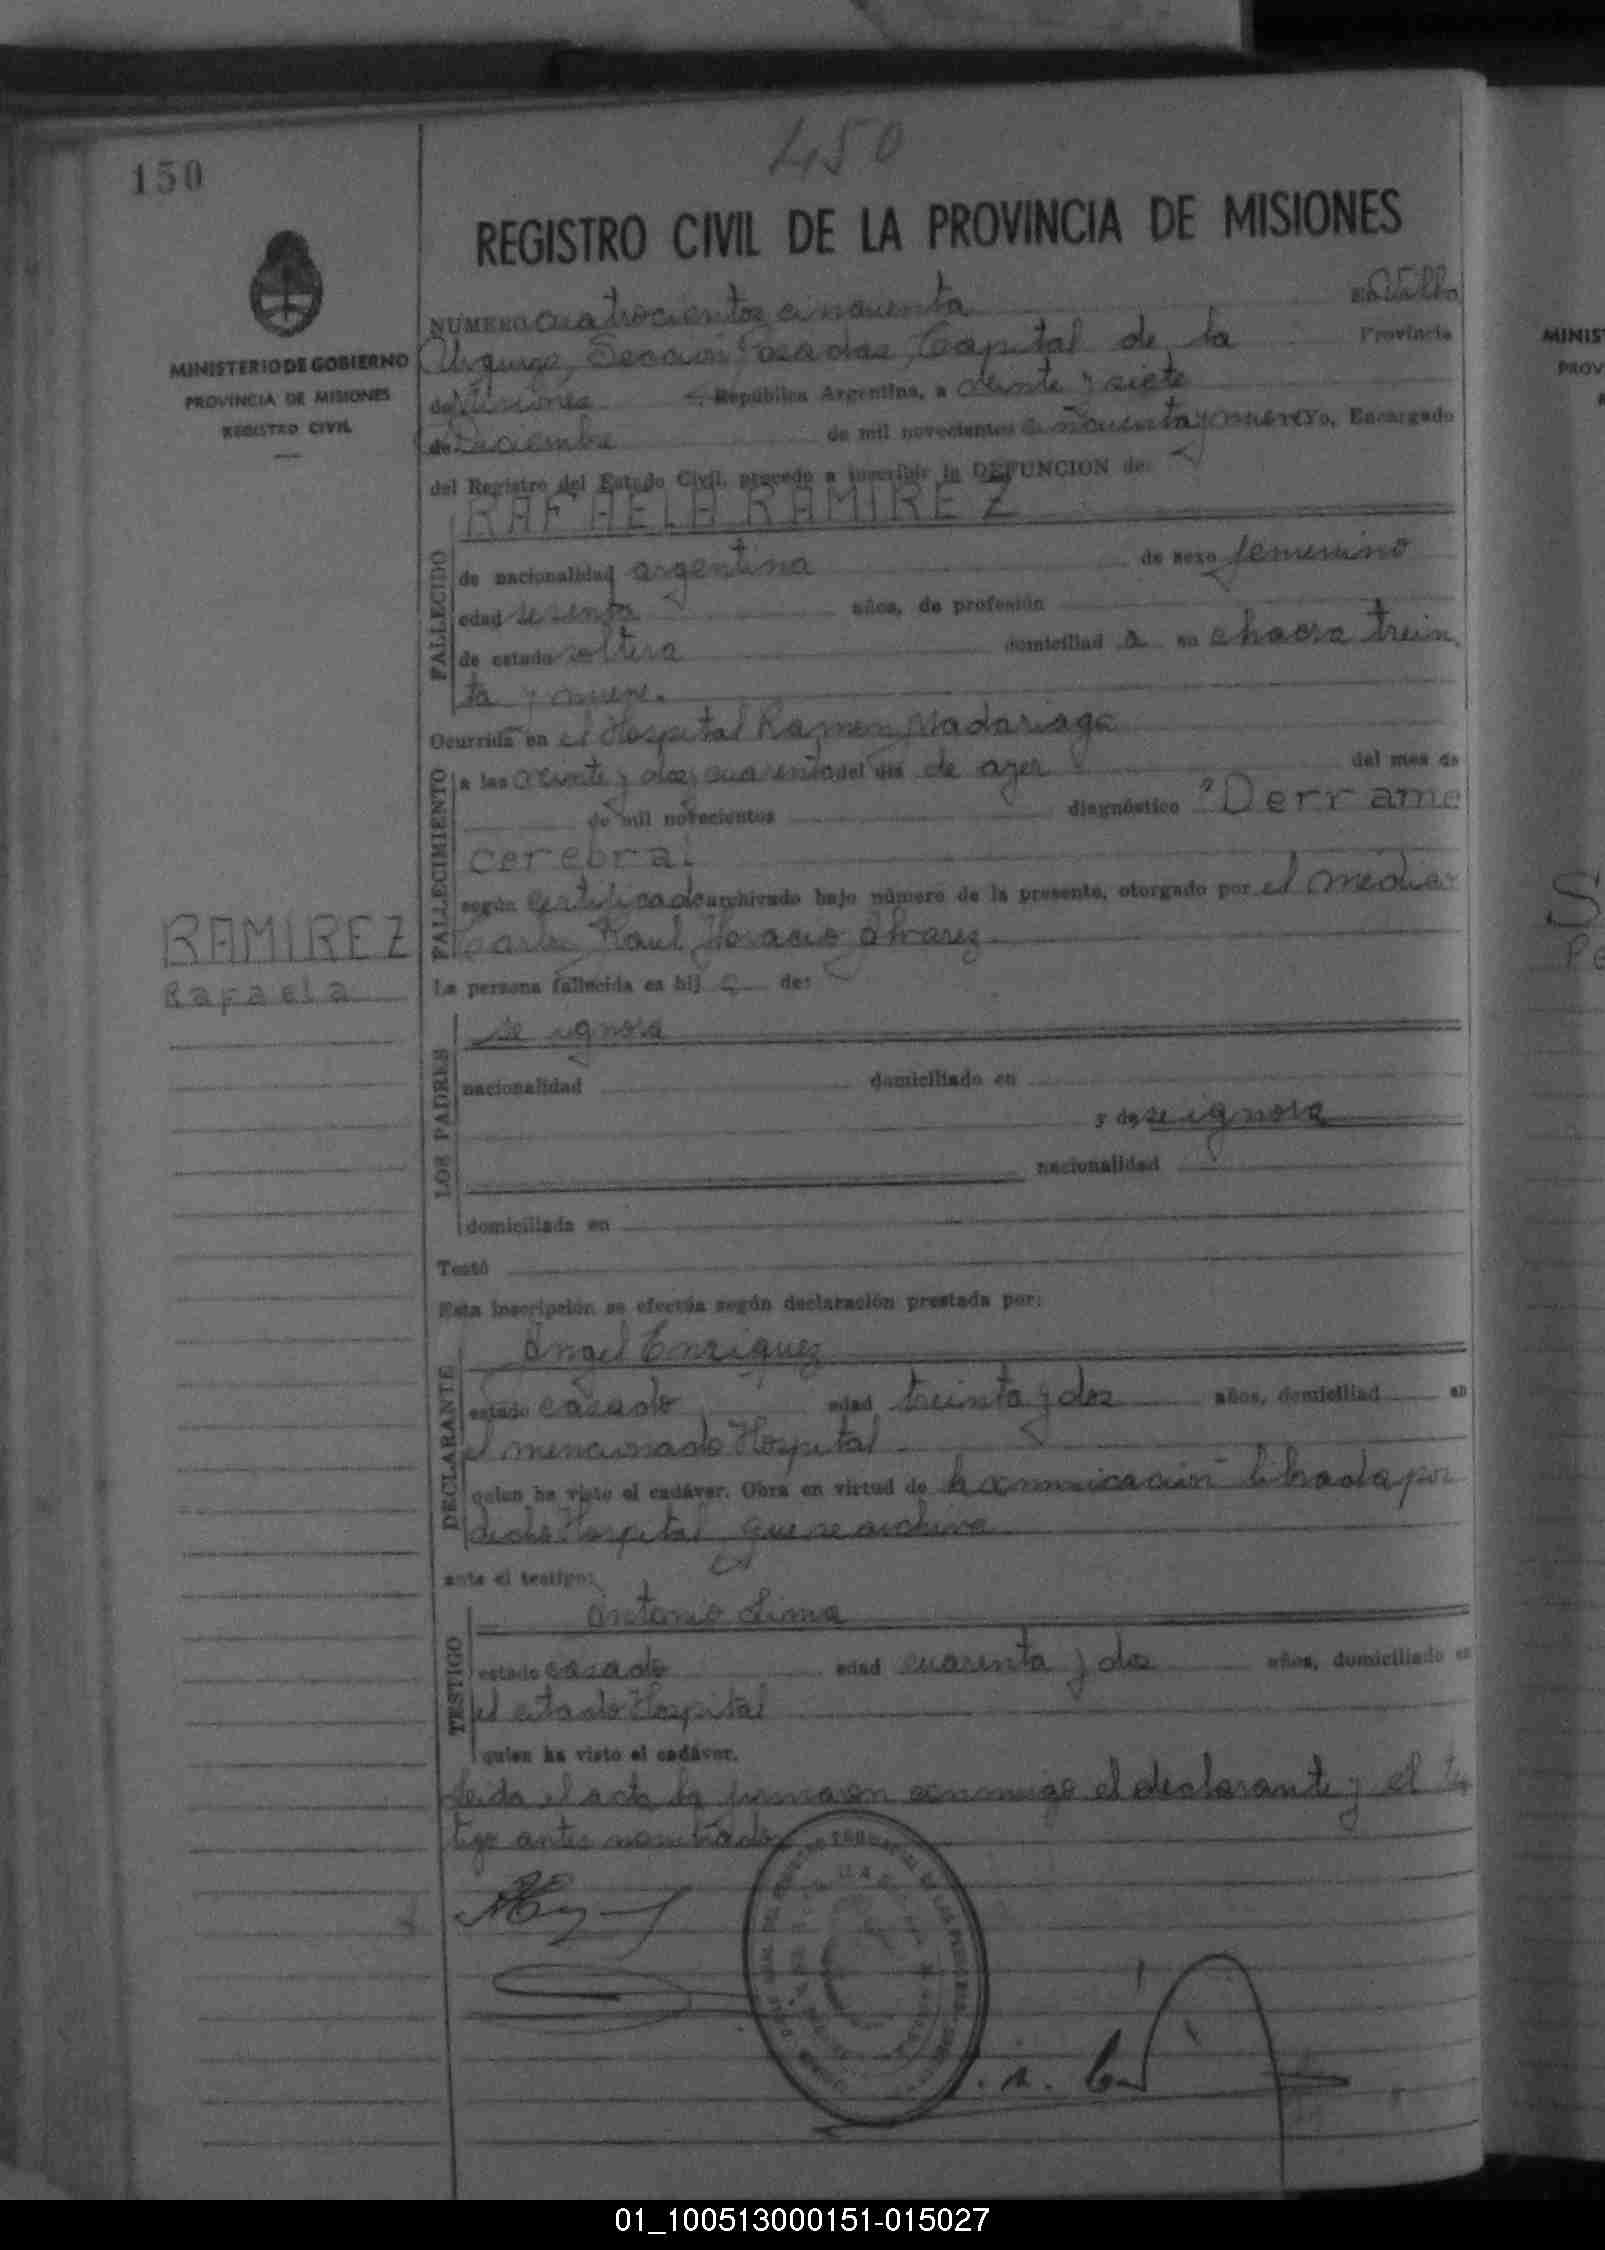 450
150
REGISTRO CIVIL DE LA PROVINCIA DE MISIONES
MINISTERIO DE GOBIERNO
PROVINCIA DE MISIONES
REGISTRO CIVIL
NUMERO cuatrocientos cincuenta En Villa
Urquiza, Sección Posadas, Capital de la Provincia
de Misiones República Argentina, a veinte y siete
de Diciembre de mil novecientos cincuenta y nueve Yo, Encargado
del Registro del Estado Civil, procedo a inscribir la DEFUNCION de:
RAFAELA RAMIREZ
FALLECIDO
de nacionalidad argentina de sexo femenino
edad setenta años, de profesión
de estado soltera domiciliad a en chacra trein
ta y nueve.
Ocurrida en el Hospital Ramón Madariaga
FALLECIMIENTO
a las veinte y dos, cuarenta del día de ayer del mes de
de mil novecientos diagnóstico "Derrame
cerebral
según certificado archivado bajo número de la presente, otorgado por el médico
Carlos Raul Horacio Alvarez
RAMIREZ
Rafaela
La persona fallecida es hij a de:
LOS PADRES
se ignora
nacionalidad domiciliado en
y de se ignora
nacionalidad
domiciliada en
Testó
Esta inscripción se efectúa según declaración prestada por:
DECLARANTE
Angel Enriquez
estado casado edad treinta y dos años, domiciliad en
el mencionado Hospital
quien ha visto el cadáver. Obra en virtud de la comunicación librada por
dicho Hospital que se archiva
ante el testigo:
TESTIGO
Antonio Lima
estado casado edad cuarenta y dos años, domiciliado en
el citado Hospital
quien ha visto el cadáver.
Leida el acta la firmaron conmigo el declarante y el tes
tigo antes nombrado
MINIST
PROV
S
Pe
01_100513000151-015027